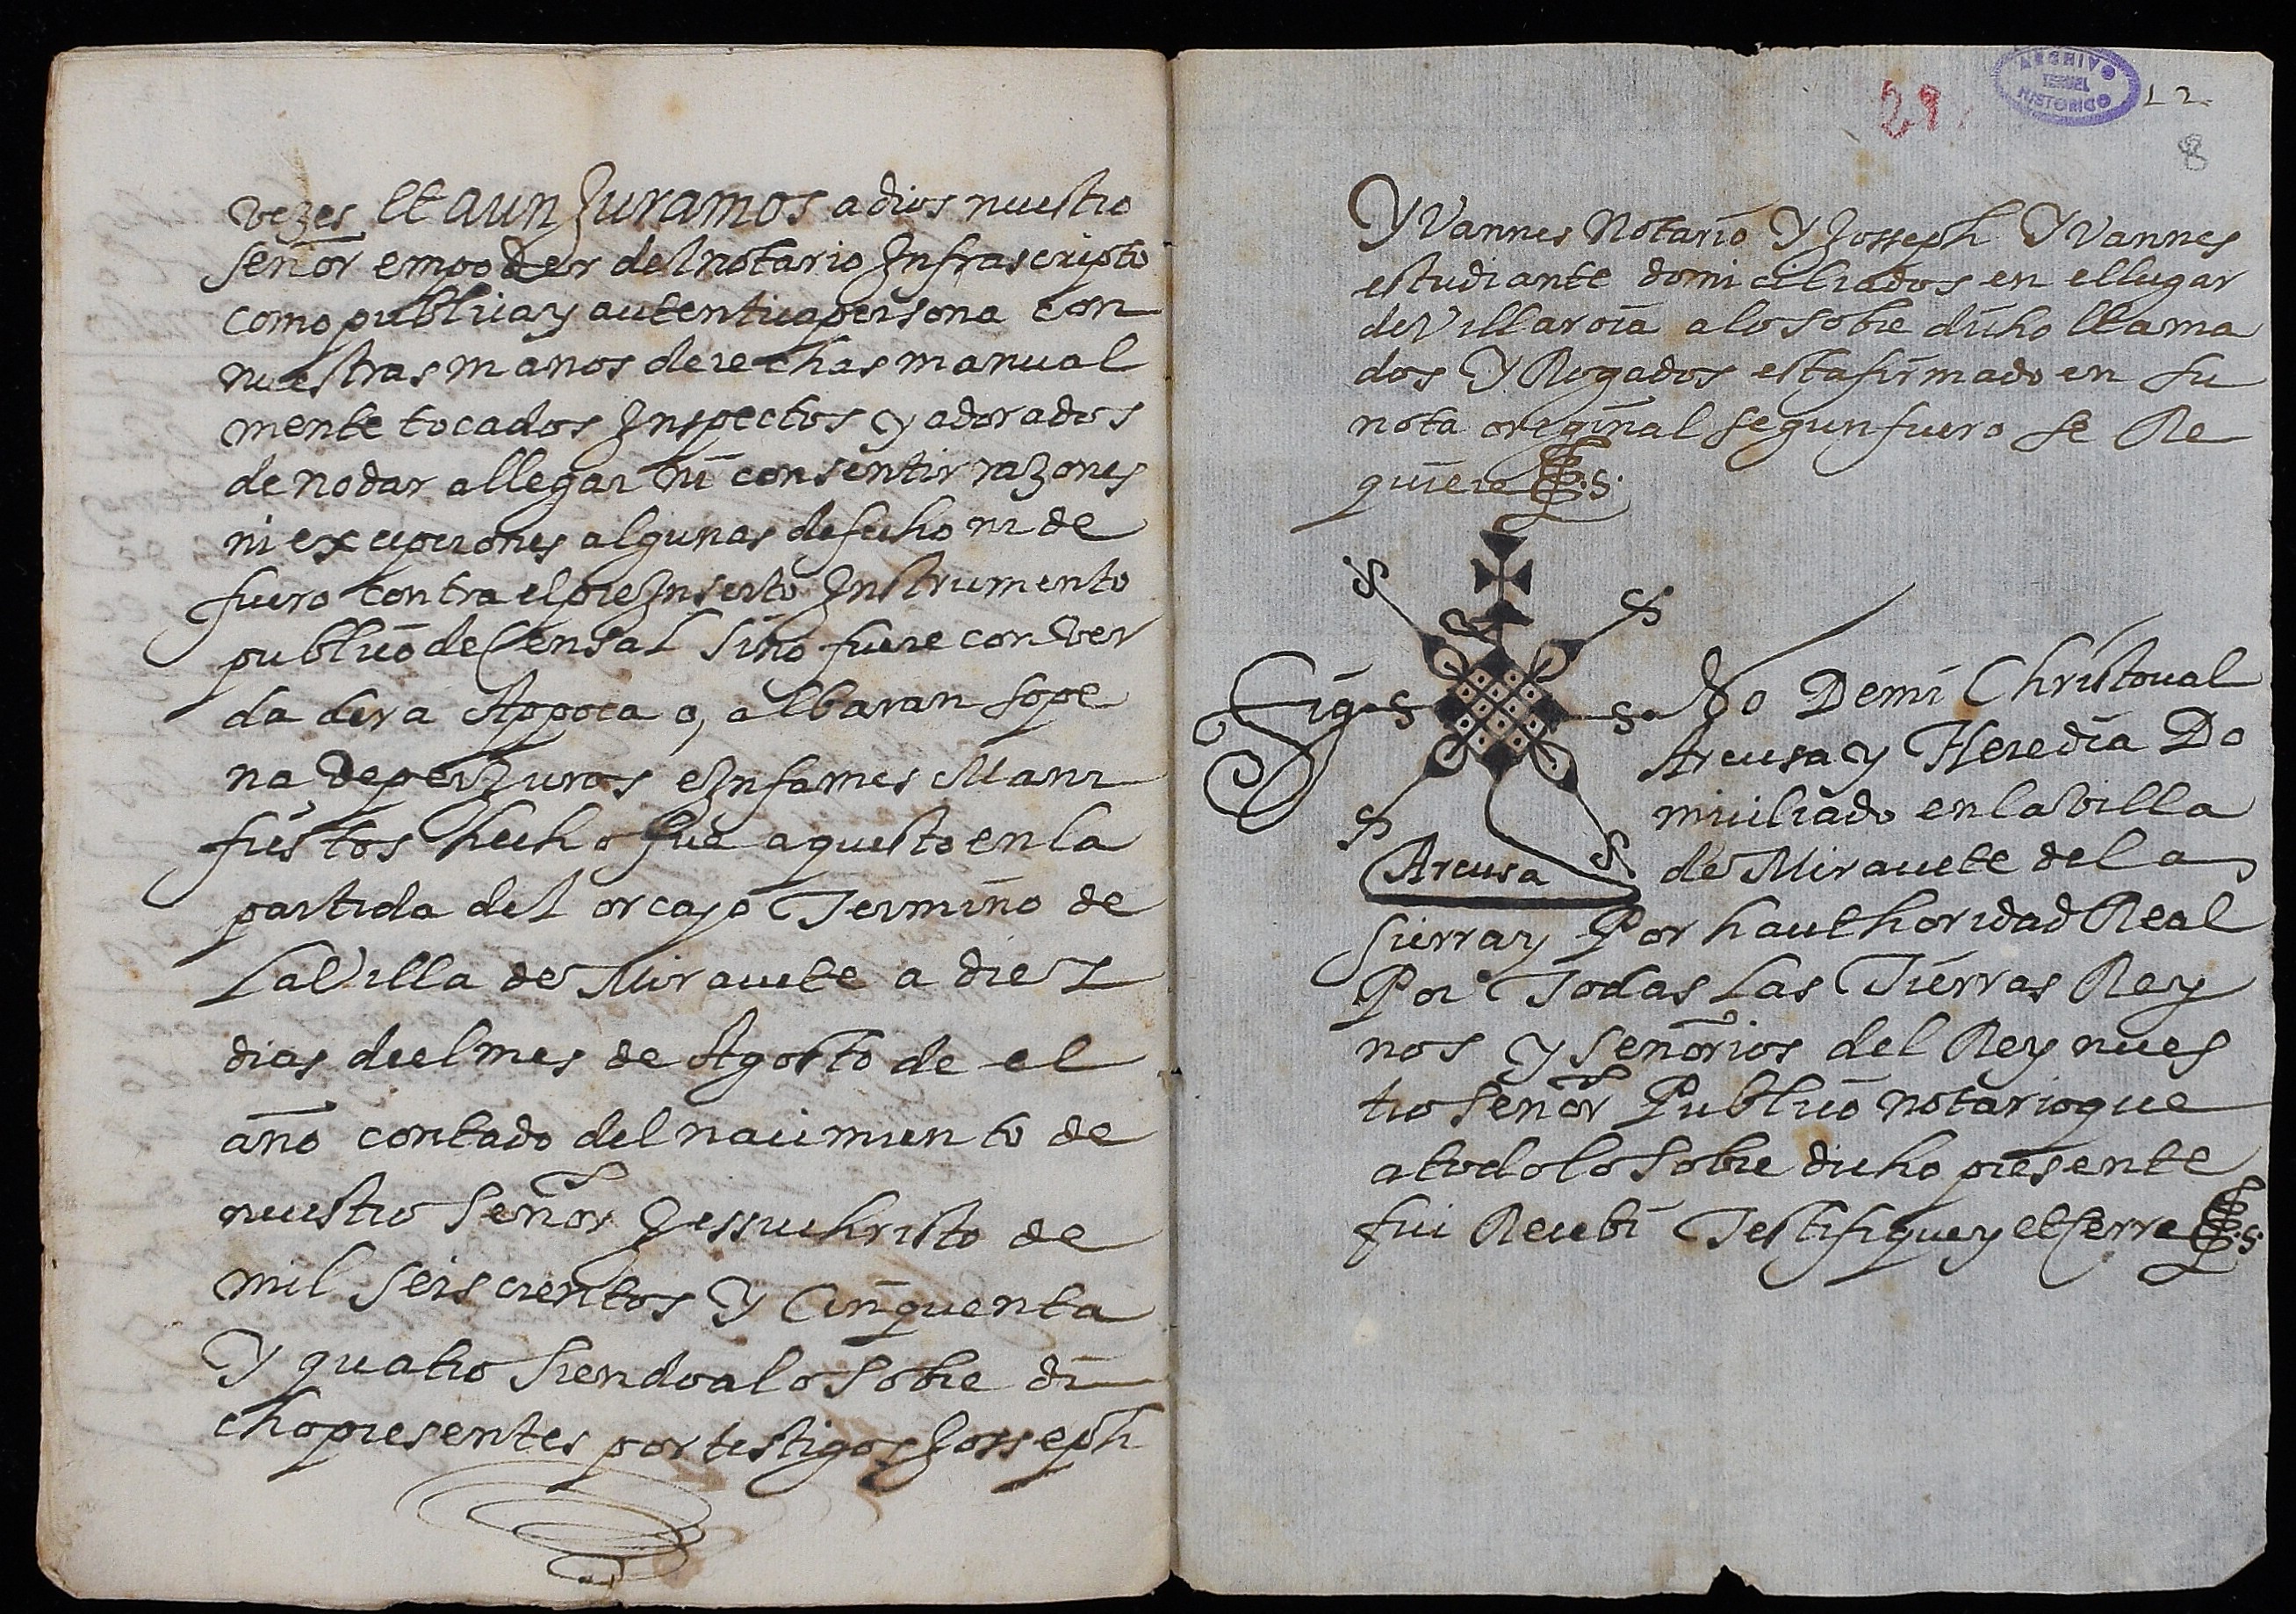 vezes et aun Juramos a dios nuestro
señor empoder del notario Infrascripto
como publica y autentica persona con
nuestras manos derechas manual
mente tocados Inspectos y adorados
de no dar allegar ni consentir razones
ni excepciones algunas de fecho ni de
fuero contra el preInserto Instrumento
publico de Censal sino fuere con ver
da dera Appoca o, albaran sope
na de perJuros e Infames Mani
fiestos hecho fue aquesto en la
partida del orcajo Termino de
La Villa de Miravete a diez
dias deel mes de Agosto de el
año contado del nacimiento de
nuestro Señor Jessuchristo de
mil seiscientos y Cinquenta
Y quatro siendo a lo sobre di
cho presentes por testigos Josseph
29.
ARCHIVO
TERUEL
HISTORICO
12
8
Yvannes Notario Y Josseph Yvannes
estudiante domiciliados en ellugar
de Villaroia a lo sobre dicho llama
dos Y Rogados esta firmado en su
nota original segun fuero se Re
quiere
Sig no De mi Christoval
Arcusa y Heredia Do
miciliado en la villa
de Miravete de la
Arcusa
Sierra y Por hauthoridad Real
Por Todas Las Tierras Rey
nos y Señorios del Rey nues
tro Señor Publico notario que
a todo lo sobre dicho presente
fui Recebi Testifique y et serre